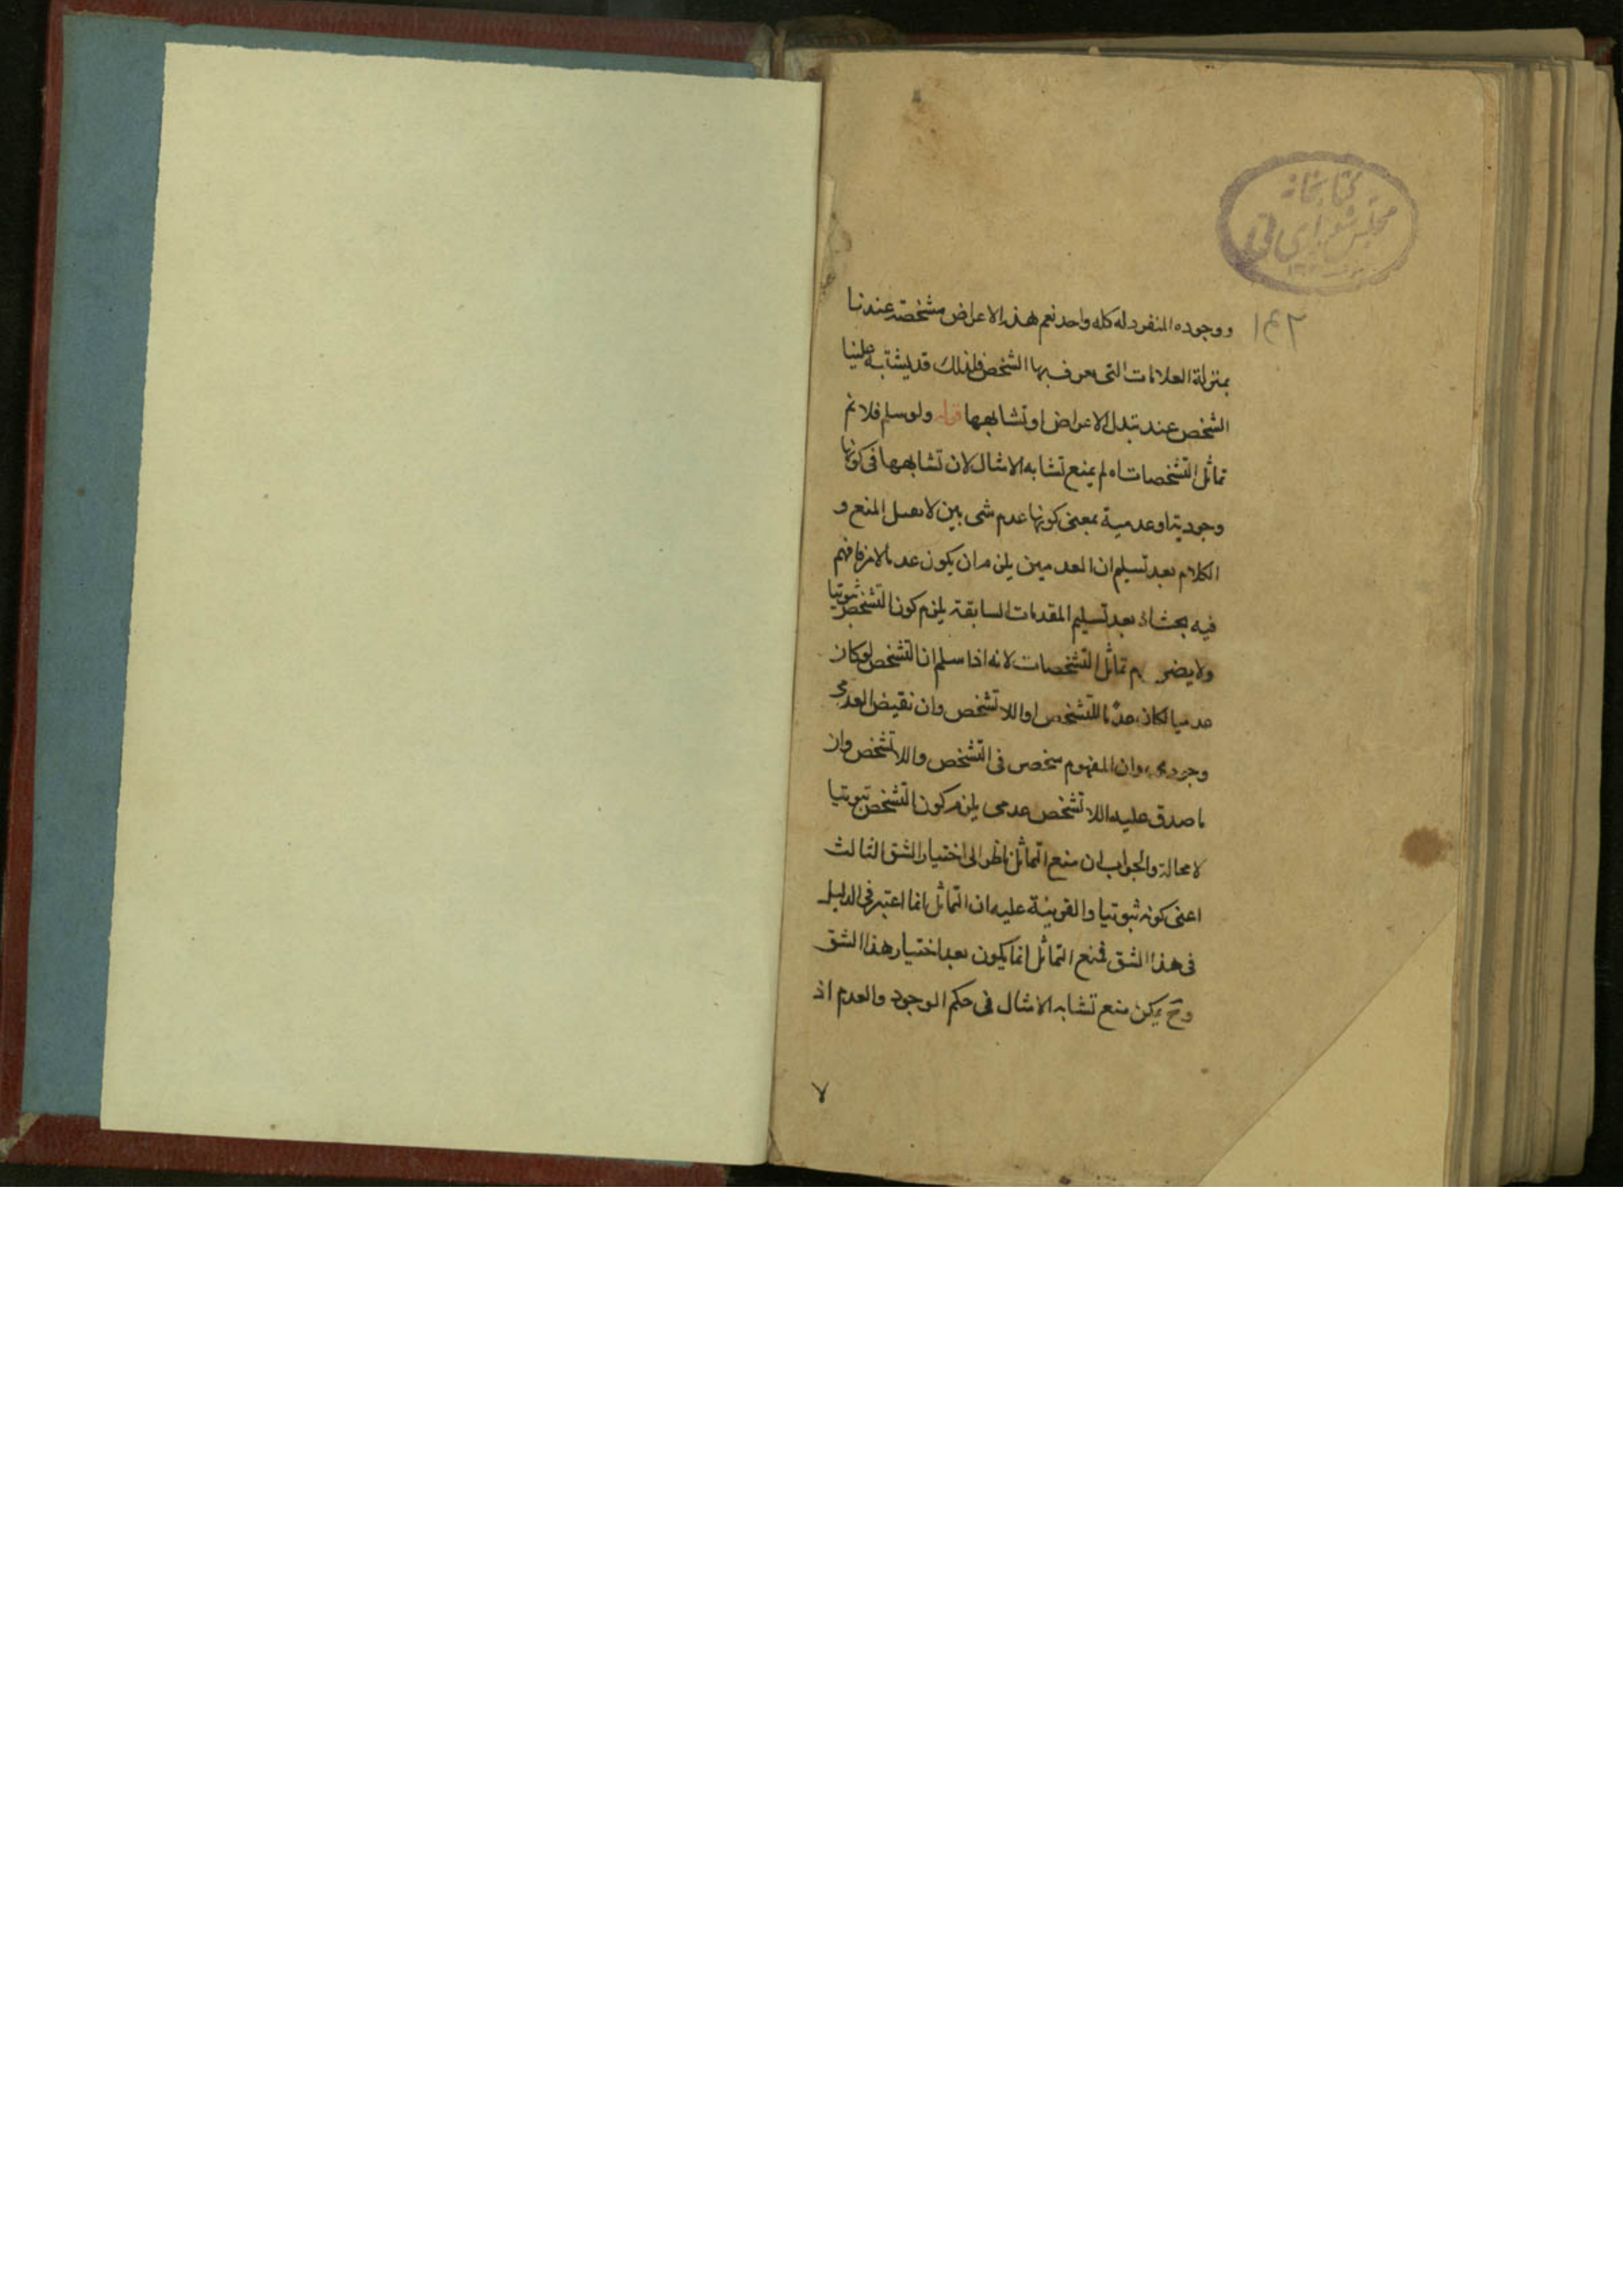 كتابخانه
مجلس شورای ملی
ووجوده المنفرد له كله واحد نعم هذه الاعراض مشخصة عندنا
بمنزلة العلامات التى يعرف بها الشخص فلذلك قد يشتبه علينا
الشخص عند تبدل الاعراض او تشابهها قوله ولو سلم فلا نم
تماثل التشخصات اه لم يمنع تشابه الامثال لان تشابهها فى كونها
وجودية او عدمية بمعنى كونها عدم شى بين لا يقبل المنع و
الكلام بعد تسليم ان العدميين يلزم ان يكون عدما لامر فافهم
فيه بحث اذ بعد تسليم المقدمات السابقة يلزم كون التشخص ثبوتيا
ولا يضر تماثل التشخصات لانه اذا سلم ان التشخص لو كان
عدميا لكان عدما للتشخص او اللا تشخص وان نقيض العدمى
وجودى وان المفهوم منحصر فى التشخص واللا تشخص وان
ما صدق عليه اللا تشخص عدمى يلزم كون التشخص ثبوتيا
لا محالة والجواب ان منع التماثل ناظر الى اختيار الشق الثالث
اعنى كونه ثبوتيا والقرينة عليه ان التماثل انما اعتبر فى الدليل
فى هذا الشق فمنع التماثل انما يكون بعد اختيار هذا الشق
وح يمكن منع تشابه الامثال فى حكم الوجود والعدم اذ
لا